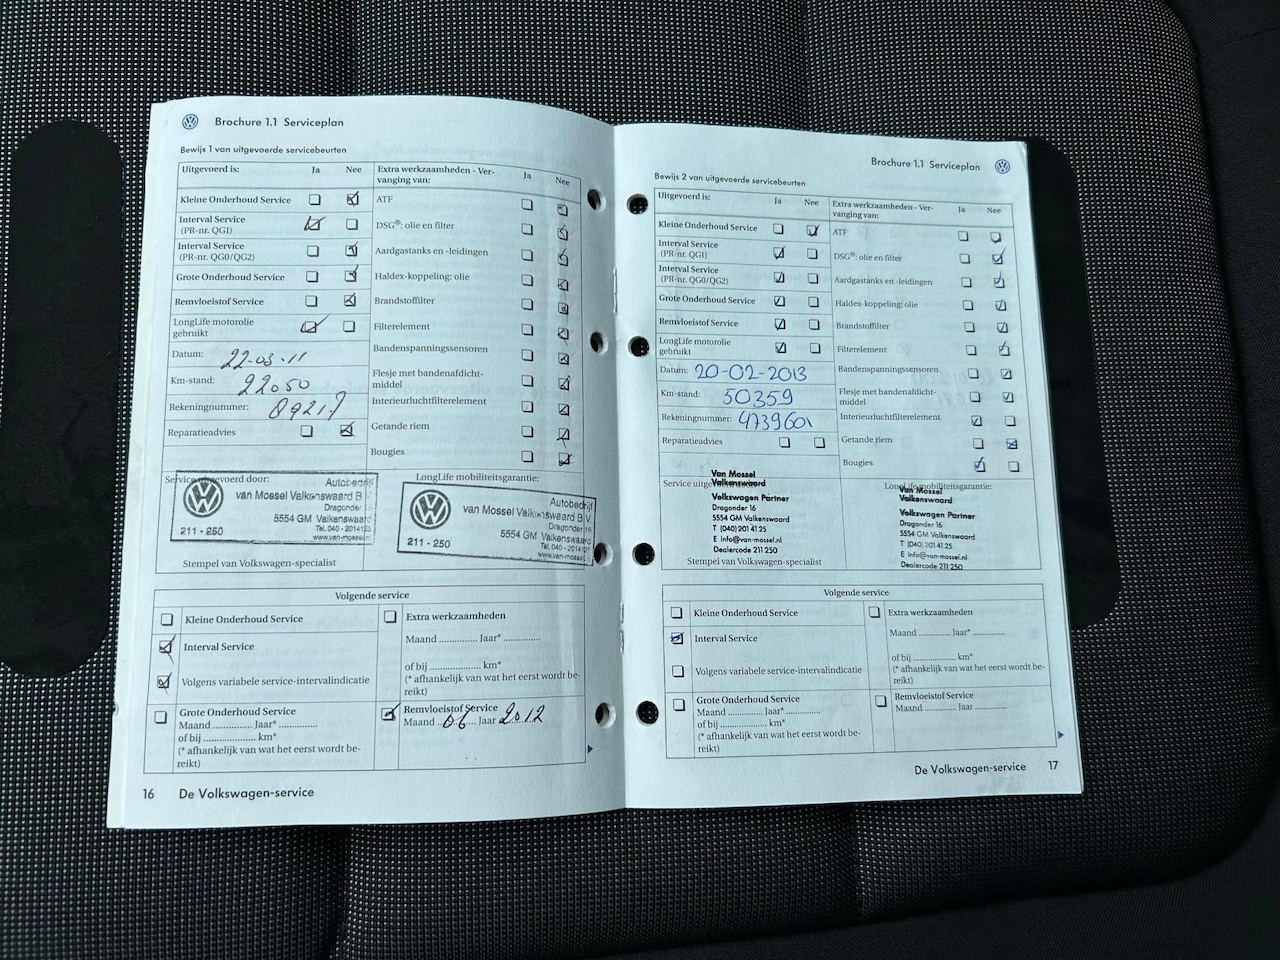 Brochure 1.1 Serviceplan
Bewijs 1 van uitgevoerde servicebeurten
Uitgevoerd is: Ja Nee
Kleine Onderhoud Service
Interval Service
(PR-nr. QG1)
Interval Service
(PR-nr. QG0/QG2)
Grote Onderhoud Service
Remvloeistof Service
LongLife motorolie
gebruikt
Datum: 22-03-11
Km-stand: 22050
Rekeningnummer:
Reparatieadvies
Extra werkzaamheden - Ver-
vanging van: Ja Nee
ATF
DSG®: olie en filter
Aardgastanks en -leidingen
Haldex-koppeling: olie
Brandstoffilter
Filterelement
Bandenspanningssensoren
Flesje met bandenafdicht-
middel
Interieurluchtfilterelement
Getande riem
Bougies
Service uitgevoerd door:
Autobedrijf
van Mossel Valkenswaard B
Dragonder
5554 GM Valkenswaard
Tel. 040 - 2014125
www.van-mossel
211 - 250
Stempel van Volkswagen-specialist
LongLife mobiliteitsgarantie:
Autobedrijf
van Mossel Valkenswaard B.V.
Dragonder 16
5554 GM Valkenswaard
Tel. 040 - 201412
www.van-mossel.
211 - 250
Volgende service
Kleine Onderhoud Service
Interval Service
Volgens variabele service-intervalindicatie
Grote Onderhoud Service
Maand .............. Jaar* ..............
of bij .................... km*
(* afhankelijk van wat het eerst wordt be-
reikt)
Extra werkzaamheden
Maand .............. Jaar* ..............
of bij .................... km*
(* afhankelijk van wat het eerst wordt be-
reikt)
Remvloeistof Service
Maand 06 Jaar 2012
16 De Volkswagen-service
Brochure 1.1 Serviceplan
Bewijs 2 van uitgevoerde servicebeurten
Uitgevoerd is: Ja Nee
Kleine Onderhoud Service
Interval Service
(PR-nr. QG1)
Interval Service
(PR-nr. QG0/QG2)
Grote Onderhoud Service
Remvloeistof Service
LongLife motorolie
gebruikt
Datum: 20-02-2013
Km-stand: 50359
Rekeningnummer: 4739601
Reparatieadvies
Extra werkzaamheden - Ver-
vanging van: Ja Nee
ATF
DSG®: olie en filter
Aardgastanks en -leidingen
Haldex-koppeling: olie
Brandstoffilter
Filterelement
Bandenspanningssensoren
Flesje met bandenafdicht-
middel
Interieurluchtfilterelement
Getande riem
Bougies
Service
Van Mossel
Valkenswaard
Volkswagen Partner
Dragonder 16
5554 GM Valkenswaard
T (040) 201 41 25
E info@van-mossel.nl
Dealercode 211 250
Stempel van Volkswagen-specialist
LongLife mobiliteitsgarantie:
Van Mossel
Valkenswaard
Volkswagen Partner
Dragonder 16
5554 GM Valkenswaard
T (040) 201 41 25
E info@van-mossel.nl
Dealercode 211 250
Volgende service
Kleine Onderhoud Service
Interval Service
Volgens variabele service-intervalindicatie
Grote Onderhoud Service
Maand .............. Jaar* ..............
of bij .................... km*
(* afhankelijk van wat het eerst wordt be-
reikt)
Extra werkzaamheden
Maand .............. Jaar* ..............
of bij .................... km*
(* afhankelijk van wat het eerst wordt be-
reikt)
Remvloeistof Service
Maand .............. Jaar ..............
De Volkswagen-service 17